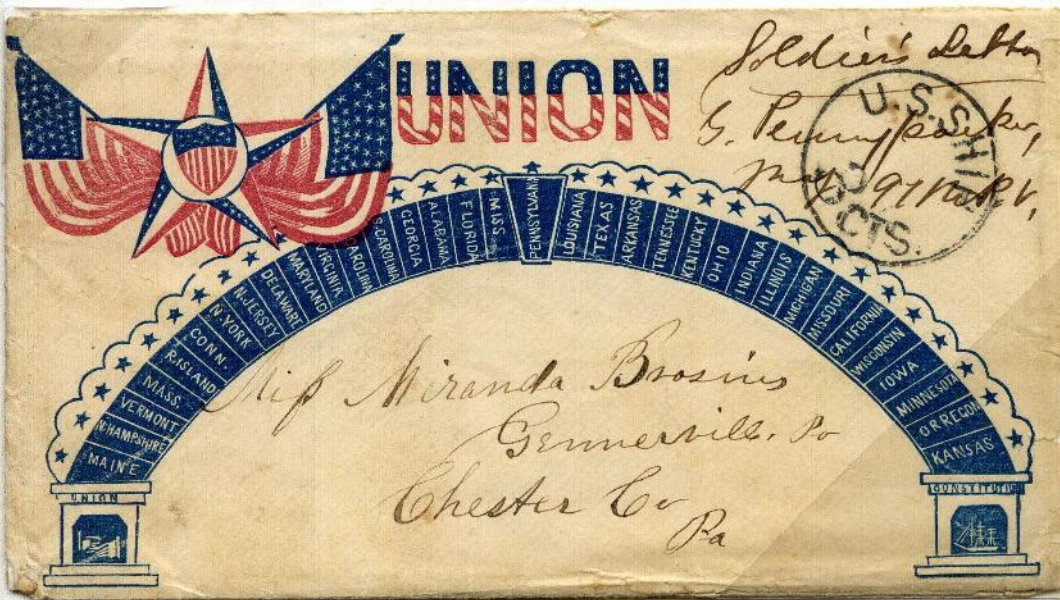 UNION
Soldier's Letter
G. Pennypacker,
Maj 97th P.V.
U.S. SHIP
3 CTS.
MAINE
N.HAMPSHIRE
VERMONT
MASS.
R.ISLAND
CONN.
N.YORK
N.JERSEY
DELAWARE
MARYLAND
VIRGINIA
CAROLINA
S.CAROLINA
GEORGIA
ALABAMA
FLORIDA
MISS.
PENNSYLVANIA
LOUISIANA
TEXAS
ARKANSAS
TENNESSEE
KENTUCKY
OHIO
INDIANA
ILLINOIS
MICHIGAN
MISSOURI
CALIFORNIA
WISCONSIN
IOWA
MINNESOTA
ORREGON
KANSAS
Miss Miranda Brosius
Gennerville. Po
Chester Co
Pa
UNION
CONSTITUTION